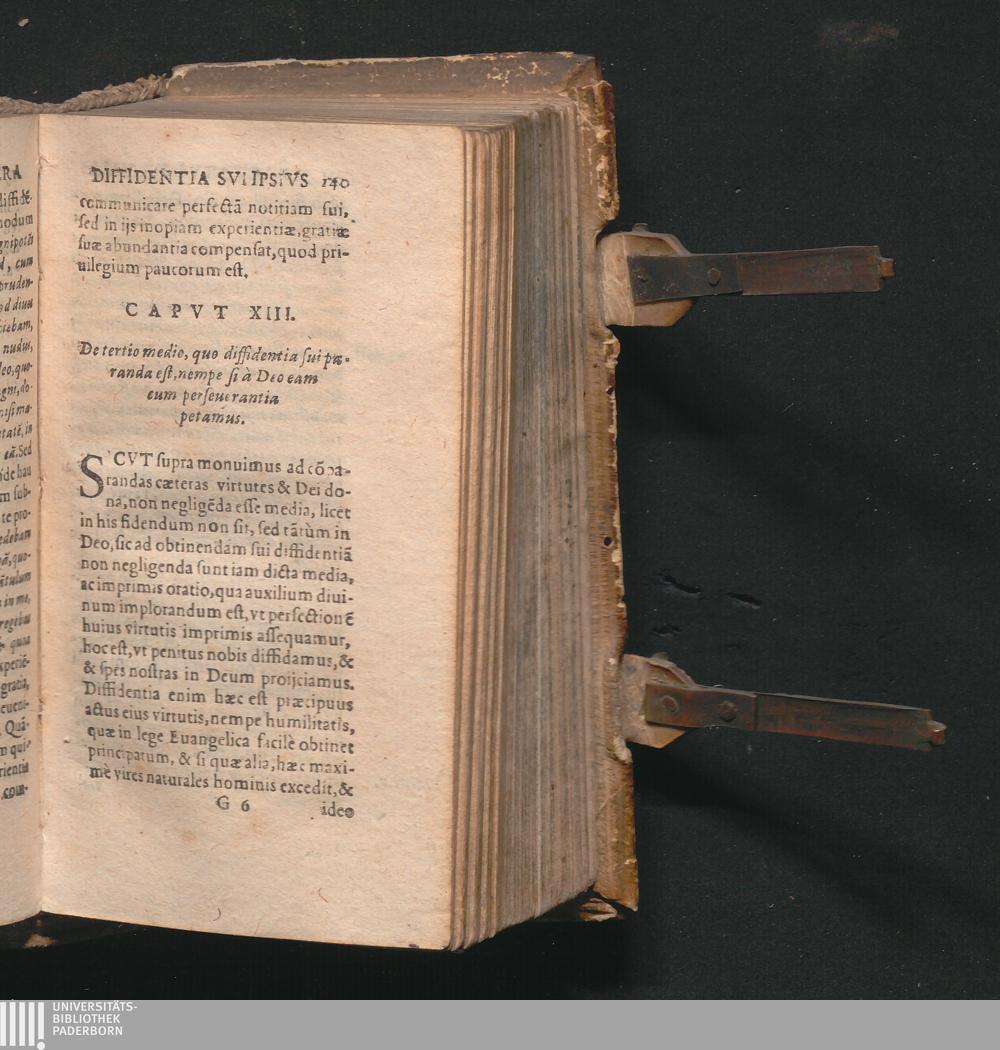 DIFFIDENTIA SVI IPSIVS 140
communicare perfectã notitiam sui,
sed in ijs inopiam experientiæ, gratiæ
suæ abundantia compensat, quod pri-
uilegium paucorum est.
CAPVT XIII.
De tertio medio, quo diffidentia sui pa-
randa est, nempe si à Deo eam
cum perseuerantia
petamus.
SICVT supra monuimus ad cõpa-
randas cæteras virtutes & Dei do-
na, non negligẽda esse media, licet
in his fidendum non sit, sed tãtùm in
Deo, sic ad obtinendam sui diffidentiã
non negligenda sunt iam dicta media,
ac imprimis oratio, qua auxilium diui-
num implorandum est, vt perfectionẽ
huius virtutis imprimis assequamur,
hoc est, vt penitus nobis diffidamus, &
& spes nostras in Deum proijciamus.
Diffidentia enim hæc est præcipuus
actus eius virtutis, nempe humilitatis,
quæ in lege Euangelica facilè obtinet
principatum, & si quæ alia, hæc maxi-
mè vires naturales hominis excedit, &
G 6 ideo
RA
nodum
cum
nudus,
Sed
gratia,
Quã-
com-
UNIVERSITÄTS-
BIBLIOTHEK
PADERBORN